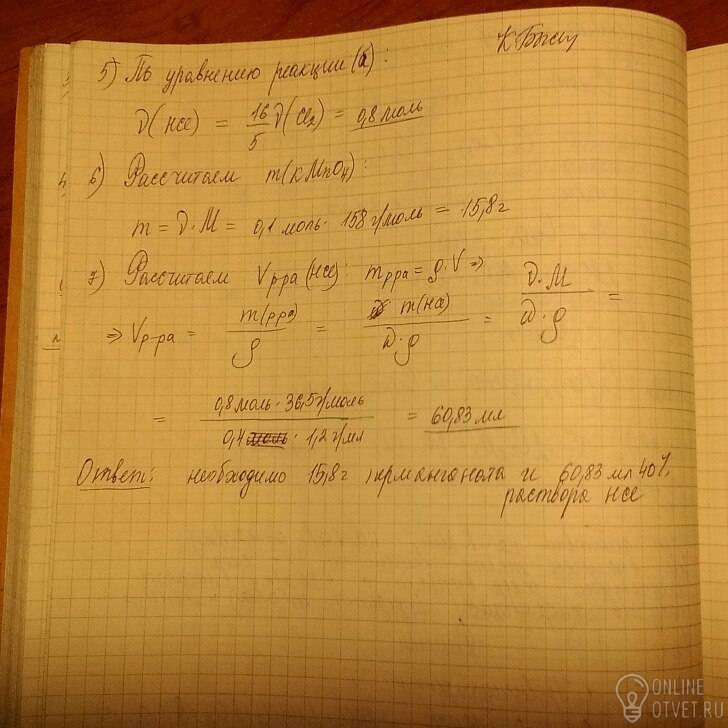 5) По уравнению реакции (а):
ν(HCl) = 16/5 ν(Cl₂) = 0,8 моль
6) Рассчитаем m(KMnO₄):
m = ν·M = 0,1 моль · 158 г/моль = 15,8 г
7) Рассчитаем Vр-ра(HCl): mр-ра = ρ·V ⇒
⇒ Vр-ра = m(р-ра)/ρ = m(HCl)/ω·ρ = ν·M/ω·ρ =
= 0,8 моль · 36,5 г/моль / 0,4 · 1,2 г/мл = 60,83 мл
Ответ: необходимо 15,8 г перманганата и 60,83 мл 40%
раствора HCl
ONLINE
OTVET.RU